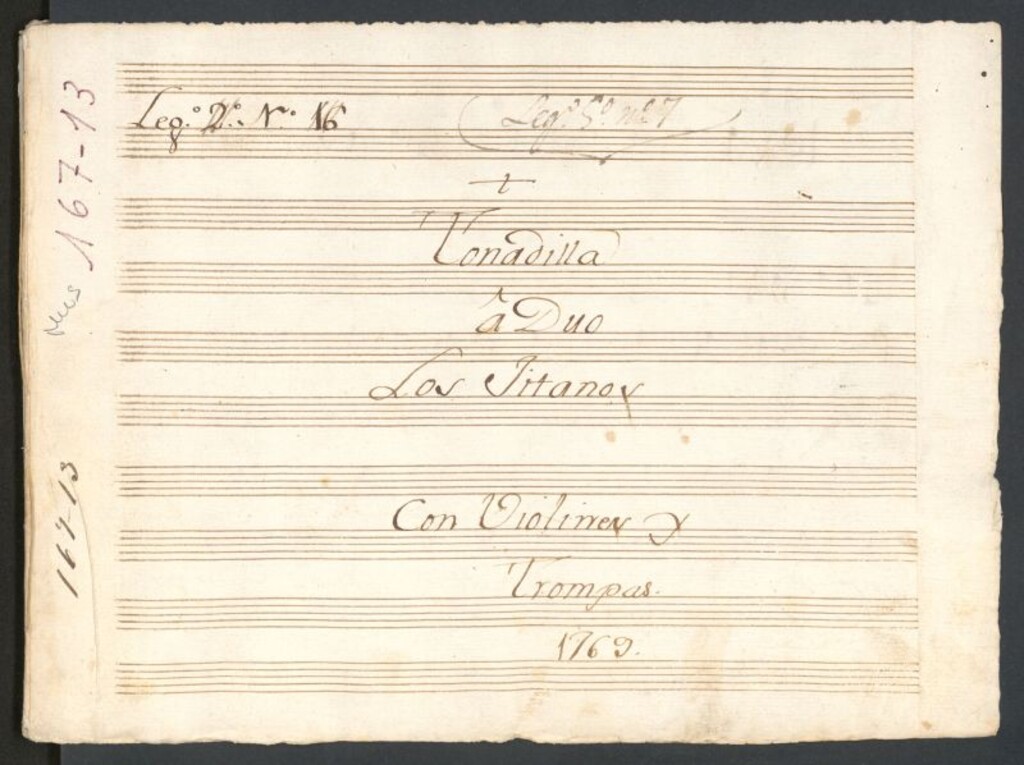 Leg.º 2º. N.º 16
Leg.º 5º nº 7
Tonadilla
â Duo
Los Jitanos
Con Violines y
Trompas.
1769.
Mus 167-13
167-13